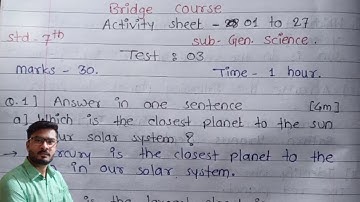 Bridge course
Activity sheet - 01 to 27
std. 7th
sub. Gen. Science.
Test : 03
marks - 30.
Time - 1 hour.
Q.1] Answer in one sentence [6m]
a] Which is the closest planet to the sun
our solar system ?
→ is the closest planet to the
in our solar system.
is the